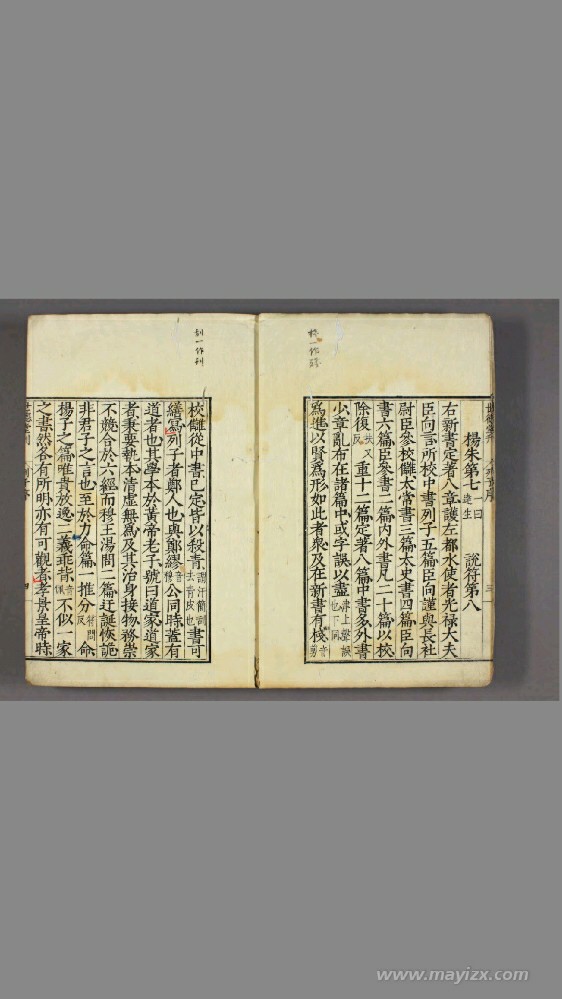 棧一作踐
楊朱第七一曰達生 說符第八
右新書定著八章護左都水使者光祿大夫
臣向言所校中書列子五篇臣向謹與長社
尉臣參校讎太常書三篇太史書四篇臣向
書六篇臣參書二篇內外書凡二十篇以校
除復扶又反重十二篇定著八篇中書多外書
少章亂布在諸篇中或字誤以盡
為進以賢為形如此者眾及在新書有棧音剪
刮一作刊
校讎從中書已定皆以殺青謂汗簡刮去青皮也書可
繕寫列子者鄭人也與鄭繆音穆公同時蓋有
道者也其學本於黃帝老子號曰道家道家
者秉要執本清虛無為及其治身接物務崇
不競合於六經而穆王湯問二篇迂誕恢詭
非君子之言也至於力命篇一推分符問反命
楊子之篇唯貴放逸二義乖背音佩不似一家
之書然各有所明亦有可觀者孝景皇帝時
三
四
www.mayizx.com